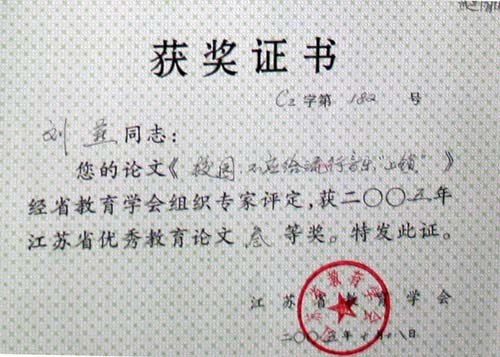 获奖证书
C2字第 182 号
刘 燕 同志：
您的论文《校园，不应给流行音乐“上锁”》
经省教育学会组织专家评定，获二〇〇五年
江苏省优秀教育论文 叁 等奖。特发此证。
江苏省教育学会
江苏省教育学会
二〇〇五年十月十八日